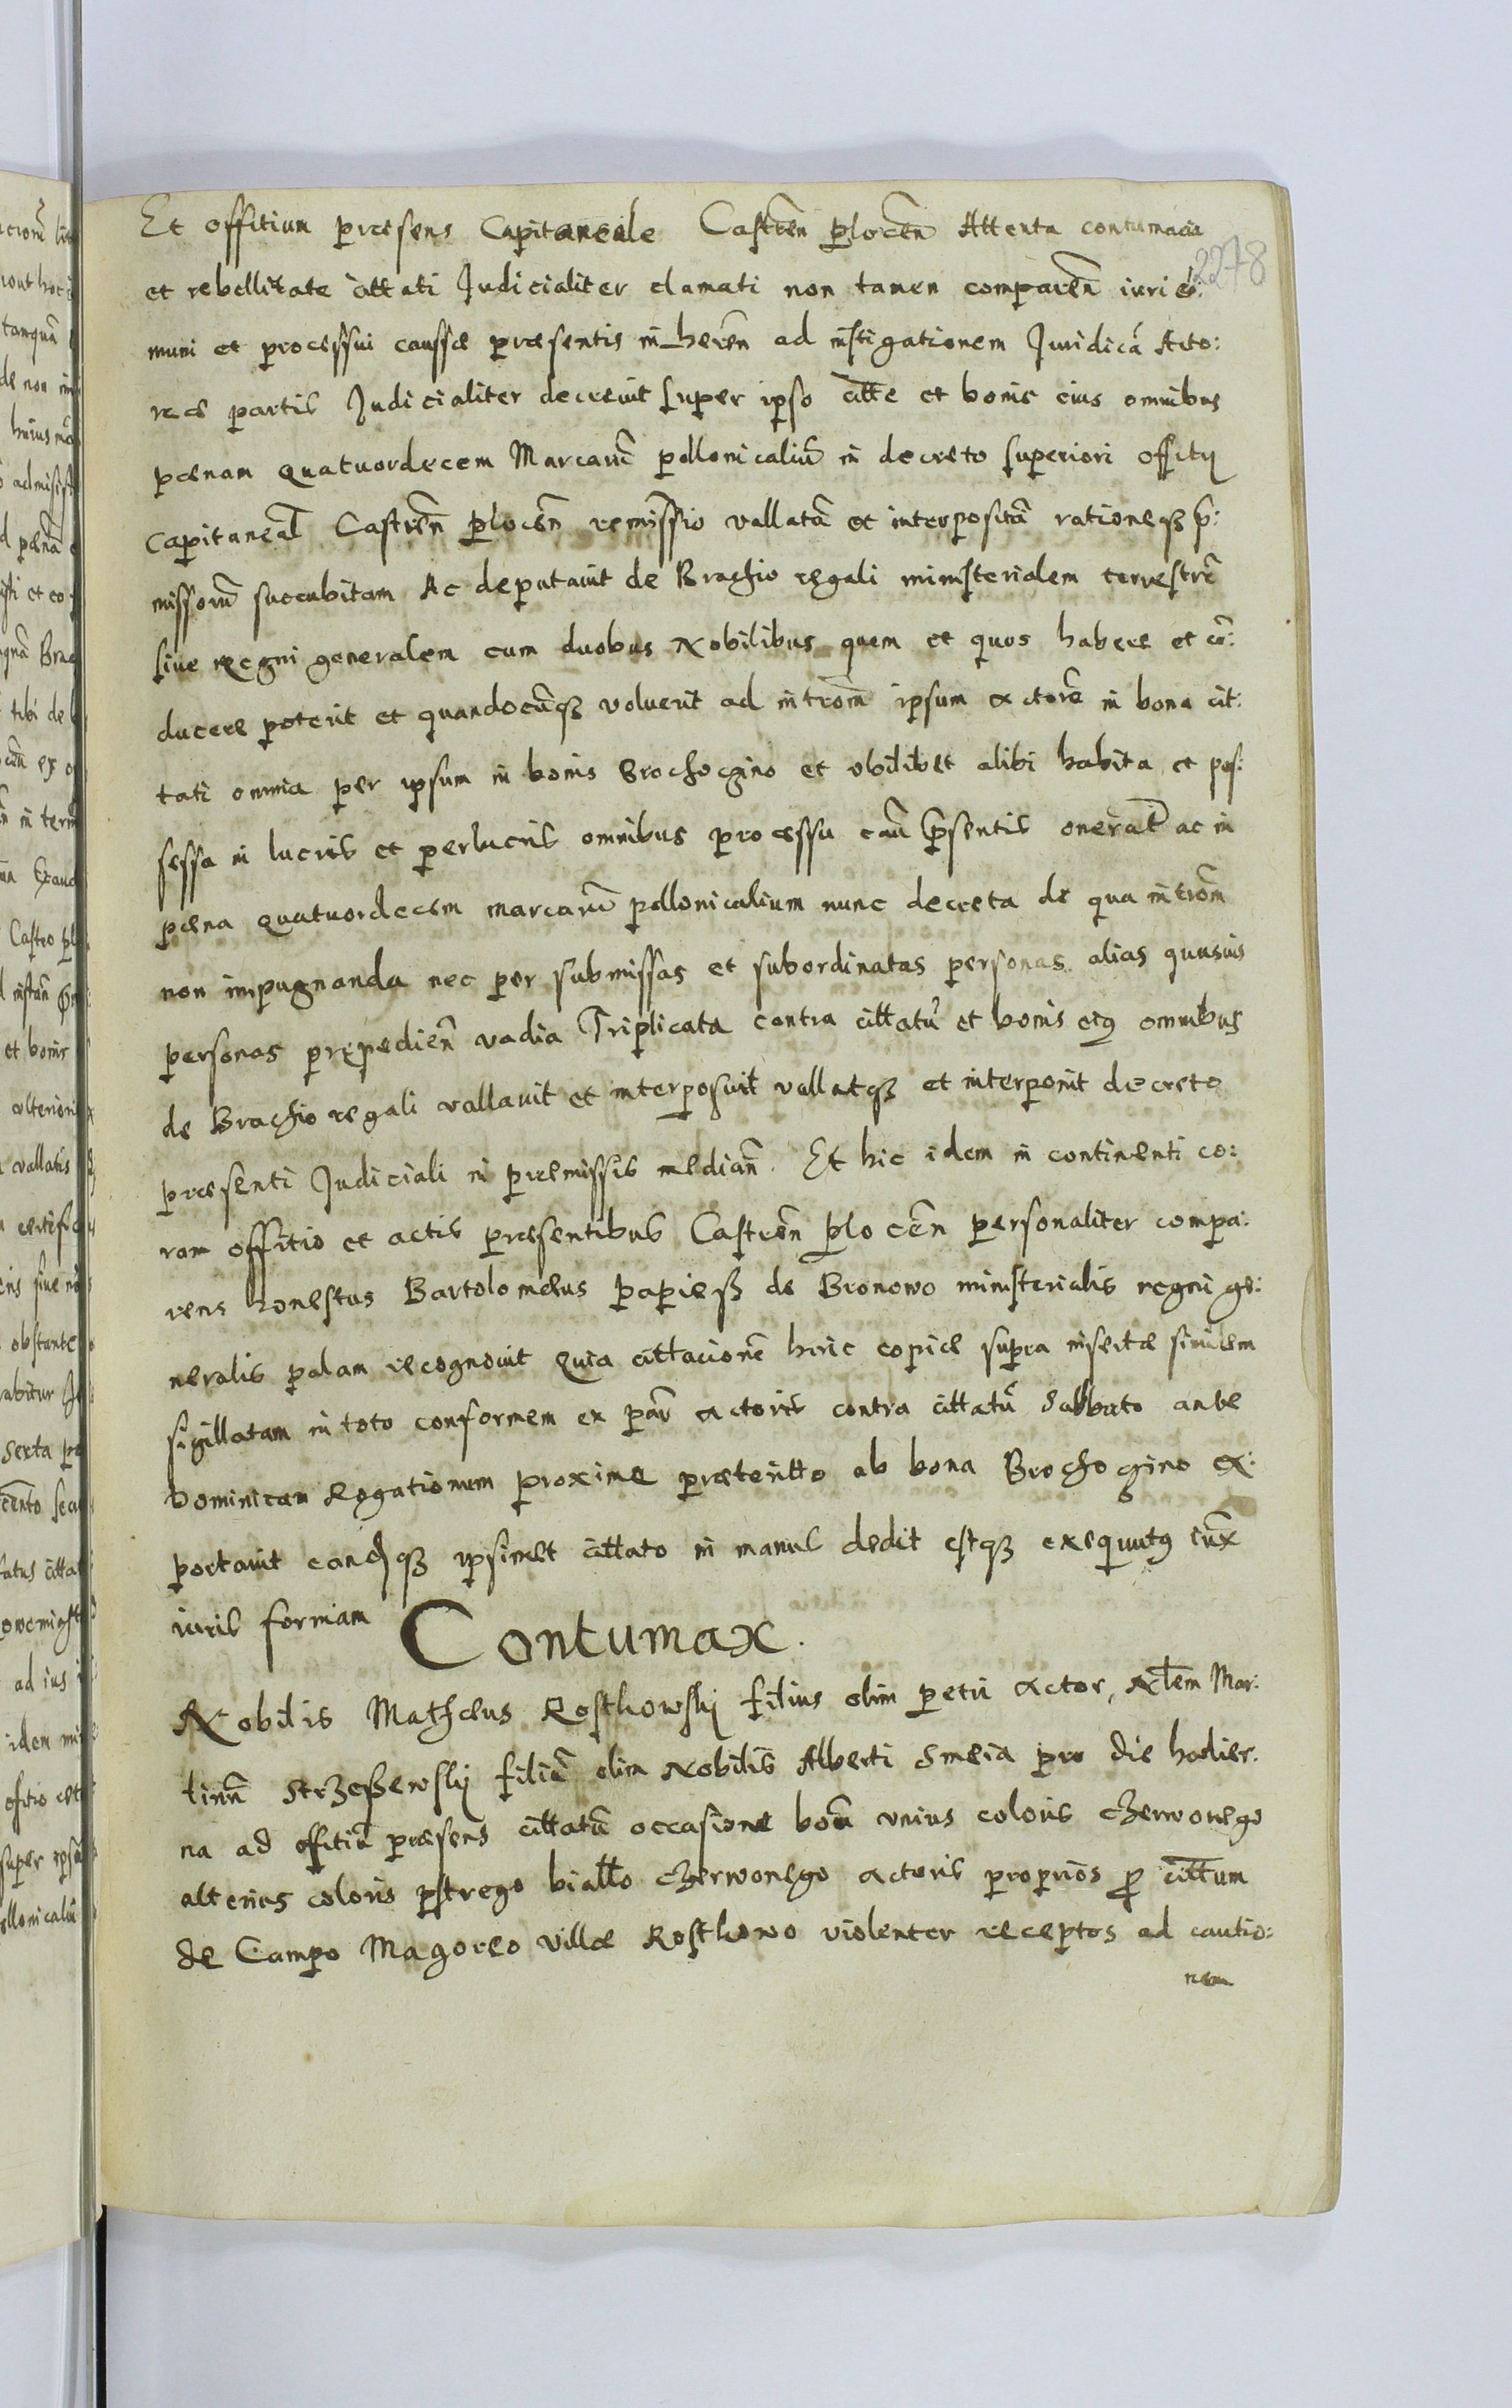 2278
Et offitium præsens Capitaneale Castren̄ plocen̄ Attenta contumacia
et rebellitate cittati Judicialiter clamati non tamen comparen̄ iuri co:
muni et processui caussæ præsentis in heren̄ ad instigationem Juridicā Acto:
reæ partis Judicialiter decreuit super ipso citte et bonis eius omnibus
pœnam quatuordecem Marcarū pollonicaliū in decreto superiori offity
Capitaneal̄ Castren̄ plocen̄ remissio vallatā et interpositā rationeqȝ p̄:
missorū succubitam Ac deputauit de Brachio regali ministerialem terrestrē
siue regni generalem cum duobus Nobilibus quem et quos habere et cō:
ducere poterit et quandocūqȝ voluerit ad introm̄ ipsum actorē in bona cit:
tati omnia per ipsum in bonis Brochocino et vbilibet alibi habita et pos:
sessa in lucris et perlucris omnibus processu cau̅ p̄sentis onerat̄ ac in
pœna quatuordecem marcarū pollonicalium nunc decreta de qua introm̄
non impugnanda nec per submissas et subordinatas personas alias quasuis
personas præpedien̄ vadia Triplicata contra cittatū et bonis eiꝯ omnibus
de Brachio regali vallauit et interposuit vallatqȝ et interponit decreto
præsenti Judiciali in præmissis median̄. Et hic idem in continenti co:
ram offitio et actis præsentibus Castren̄ plocen̄ personaliter compa:
rens honestus Bartolomeus papieß de Bronowo ministerialis regni ge:
neralis palam recognouit quia cittacionē huic copiæ supra insertæ similem
sigillatam in toto conformem ex par̄ actoris contra cittatū Sabbato ante
Dominicam Rogationum proxime præteritto ab bona Brochocino ex:
portauit eandqȝ ipsimet cittato in manus dedit estqȝ exequutꝯ iux̄
iuris formam Contumax.
Nobilis Mathæus Rosthowsky filius olim petri actor, Nl̄em Mar:
tinū Strzeßewsky filiū olim Nobilis Alberti Smeia pro die hodier:
na ad offitiū præsens cittatū occasione boū vnius coloris czerwonego
alterius coloris pstrego biallo czerwonego actoris proprios p̄ cittum
de Campo Magoreo villæ Rosthowo violenter receptos ad cautio:
nem